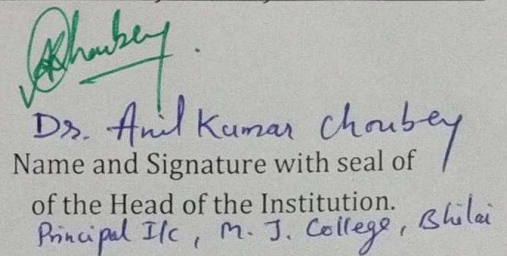 AKhoubey.
Dr. Anil Kumar Choubey
Name and Signature with seal of
of the Head of the Institution.
Principal I/c, M. J. College, Bhilai